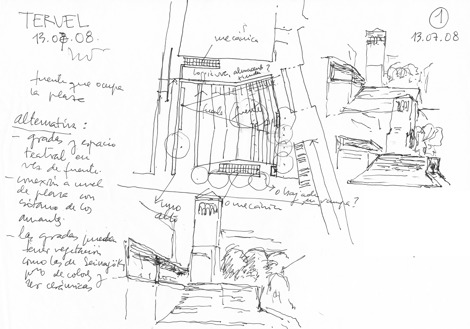 TERUEL
13.07.08.
fuente que ocupa
la plaza
alternativa:
- gradas y espacio
teatral en
vez de fuente.
- conexión a nivel
de plaza con
sistema de los
amantes.
- las gradas pueden
tener vegetación
como las de Seinajöki
pero de color y
ser cerámicas
mecánica
fuente
muro
alto
o mecánica
rampa?
1
13.07.08